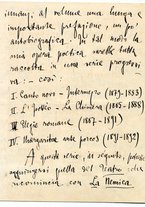 innanzi al volume una lunga e
importante prefazione, un po'
autobiografica. In tal modo la
mia opera poetica, sarebbe tutta
raccolta in una serie progressi-
va: - così:
I Canto novo - Intermezzo (1879-1883)
II L'Isottèo - La Chimera (1885-1888)
III Elegie romane (1887-1891)
IV Margaritae ante porcos (1891-1892)
A queste serie, in seguito, potrebbe
aggiungersi quella del Teatro che
incomincia con La Nemica.